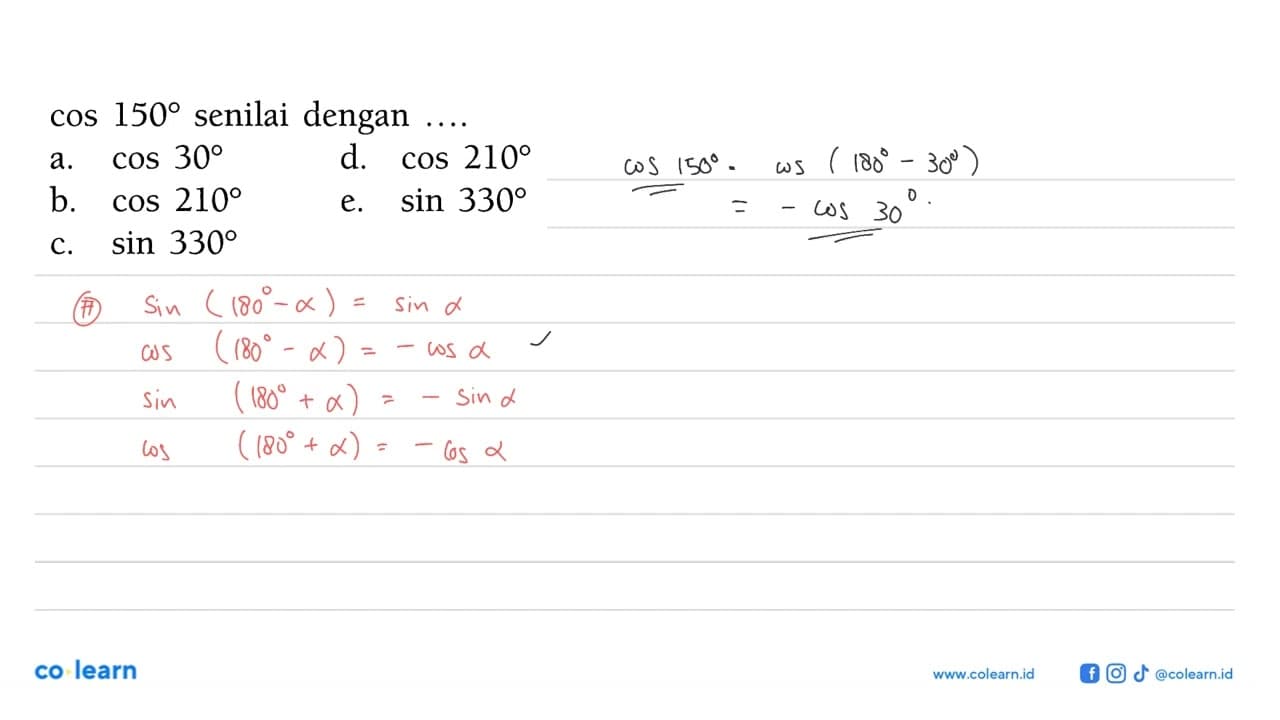 cos 150° senilai dengan ....
a. cos 30° d. cos 210°
b. cos 210° e. sin 330°
c. sin 330°
cos 150° = cos (180° - 30°)
= - cos 30°.
# sin (180° - α) = sin α
cos (180° - α) = - cos α ✓
sin (180° + α) = - sin α
cos (180° + α) = - cos α
co learn
www.colearn.id @colearn.id